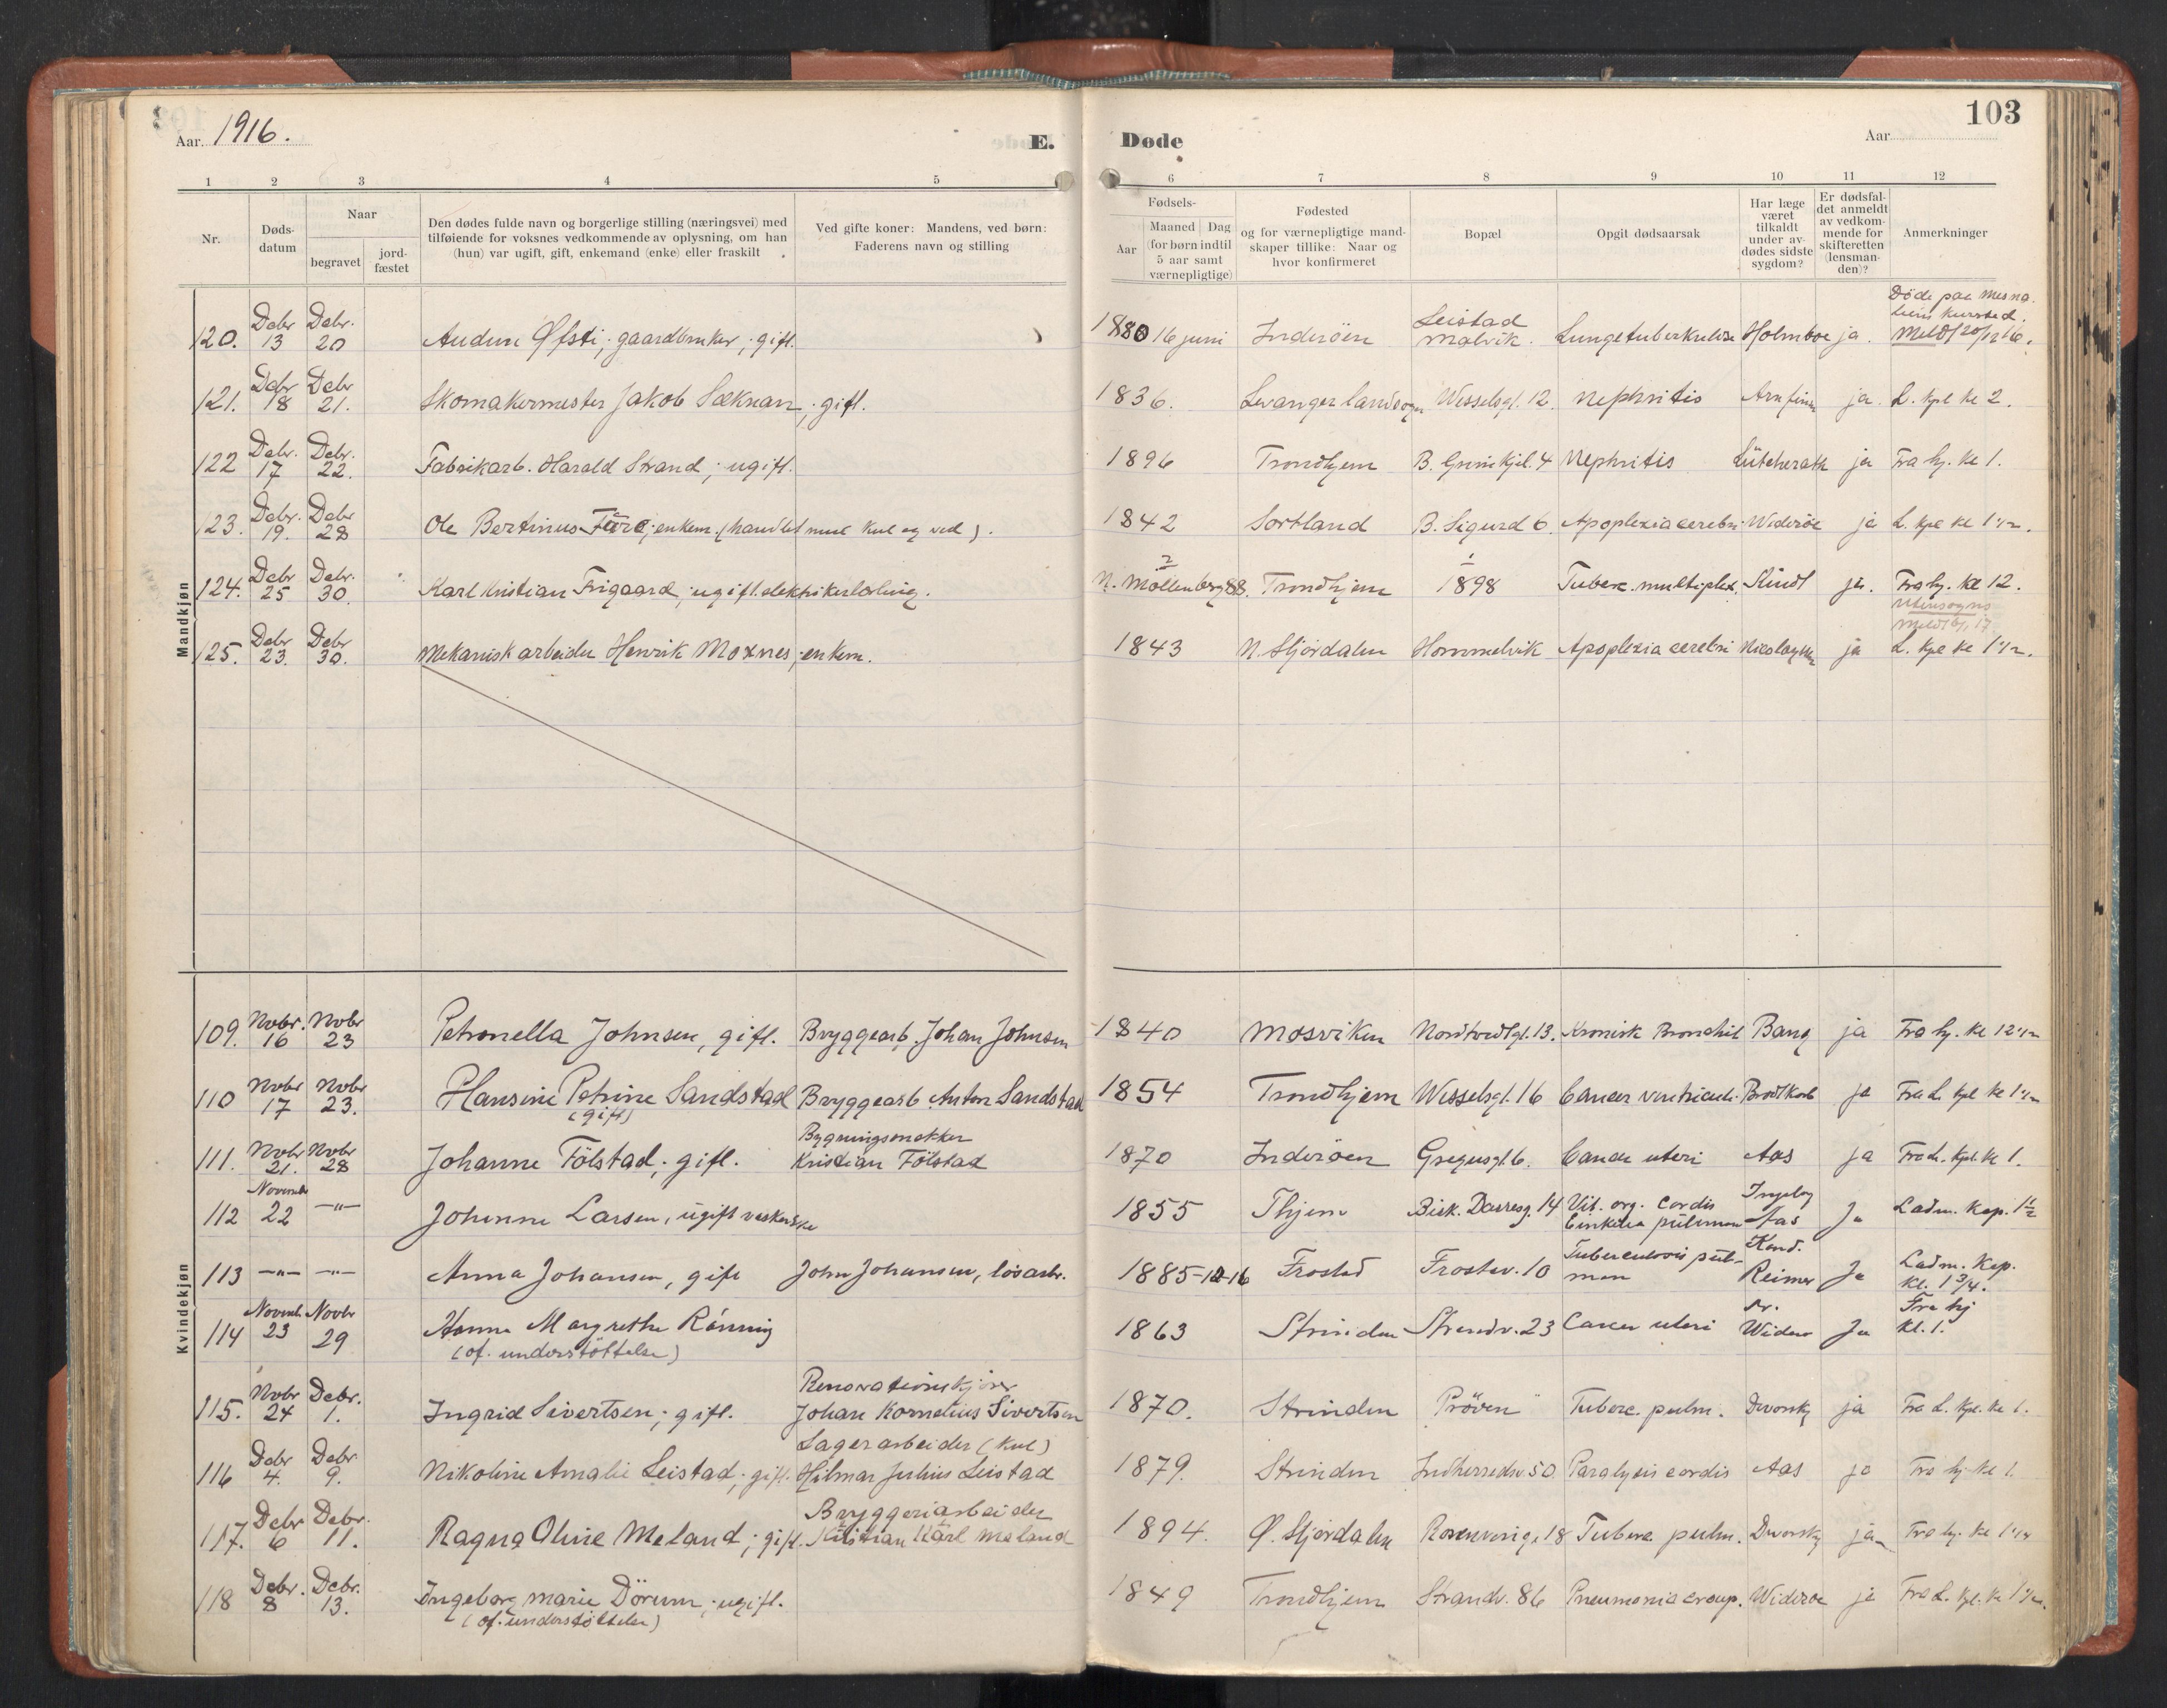 103
Aar 1916.
E.
Døde
Aar
1 2 3 4 5 6 7 8 9 10 11 12
Nr.
Døds-
datum
Naar
begravet
jord-
fæstet
Den dødes fulde navn og borgerlige stilling (næringsvei) med
tilføiende for voksnes vedkommende av oplysning, om han
(hun) var ugift, gift, enkemand (enke) eller fraskilt
Ved gifte koner: Mandens, ved børn:
Faderens navn og stilling
Fødsels-
Aar
Maaned Dag
(for børn indtil
5 aar samt
værnepligtige)
Fødested
og for værnepligtige mand-
skaper tillike: Naar og
hvor konfirmeret
Bopæl
Opgit dødsaarsak
Har læge
været
tilkaldt
under av-
dødes sidste
sygdom?
Er dødsfal-
det anmeldt
av vedkom-
mende for
skifteretten
(lensman-
den)?
Anmerkninger
Mandkjøn
Døde paa Mesna-
liens kursted.
120. Debr 13 Debr. 20 Audun Øfsti; gaardbruker; gift. 1880 16 juni Inderöen Leistad Malvik. Lungetuberkulose Holmboe ja. Meldt 20/12 16.
121. Debr 18 Debr 21. Skomakermester Jakob Sæknan; gift. 1836. Levanger landsogn Wesselsgt. 12. Nephritis ja. L. kpl kl 2.
122 Debr. 17 Debr. 22. Fabrikarb. Harald Strand; ugift. 1896 Trondhjem B. Grinikjel. 4 Nephritis Lütcherath ja Fra hj. kl 1.
123. Debr. 19. Debr 28 Ole Bertinus Færö; enkem. (handlet med kul og ved). 1842 Sortland B. Sigurd 6. Apoplexia cerebri Wideröe ja L. kpl kl 1 1/2.
124. Debr 25 Debr. 30. Karl Kristian Frigaard; ugift. elektrikerlærling. N. Möllenberg 88. Trondhjem 1898 Tuberc. multiplex. Kindt ja. Fra hj. kl 12.
Utensogns
125. Debr 23. Debr 30. Mekanisk arbeider Henrik Moxnes; enkem. 1843 N. Stjördalen Hommelvik Apoplexia cerebri ja L. kpl kl 1 1/2.
Kvindekjøn
109. Nobr. 16 Nobr 23 Petronella Johnsen, gift. Bryggearb. Johan Johnsen 1840 Mosviken Nordtvedtgt. 13. Kronisk Bronchit Bang ja Fra hj. kl 12 1/2
110 Nobr 17 Nobr 23. Hansine Petrine Sandstad Bryggearb Anton Sandstad 1854 Trondhjem Wesselsgt. 16 Cancer ventriculi Brodtkorb ja Fra L. kpl kl 1 1/2
(gift)
Bygningssnekker
111. Nobr 21. Nobr 28 Johanne Fölstad; gift. Kristian Fölstad 1870 Inderöen Gregusgt. 6. Cancer uteri Aas ja Fra L. kpl. kl 1.
112 Novembr 22 —"— Johanne Larsen, ugift vaskerske 1855 Thjem Bisk. Darresg. 14 Vit. org. cordis Ingeborg Aas Ja Ladm. Kap. 1 1/2
113 —"— —"— Anna Johansen, gift John Johansen, lösarb. 1885-12-16 Frosta Frostav. 10 Tuberculosis pul-
mon Kand. Reimer Ja Ladm. Kap. kl. 1 3/4.
114 Novemb. 23 Novbr 29 Hanna Margrethe Rönning 1863 Strinden Strandv. 23 Cancer uteri Dr. Wideröe Ja Fra hj kl. 1.
(of. understöttelse)
Renovationskjörer
115. Nobr 24 Debr. 1. Ingrid Sivertsen; gift. Johan Kornelius Sivertsen 1870. Strinden Pröven Tuberc. pulm. Dworsky ja Fra L. kpl. kl 1.
Lagerarbeider (kul)
116 Debr 4. Debr 9. Nikoline Amalie Leistad; gift. Hilmar Julius Leistad 1879. Strinden Indherredsv. 50 Paralysis cordis Aas ja Fra hj. kl 1.
Bryggeriarbeider
117. Debr 6 Debr. 11. Ragna Oline Meland; gift. Kristian Karl Meland 1894. Ø. Stjördalen Rosenborig. 18 Tuberc. pulm. Dworsky ja Fra hj. kl 1 1/2
118 Debr. 8 Debr. 13. Ingeborg Marie Dörum; ugift. 1849 Trondhjem Strandv. 86 Pneumonia croup. Wideröe ja Fra L. kpl. kl 1 1/2.
(of. understöttelse)